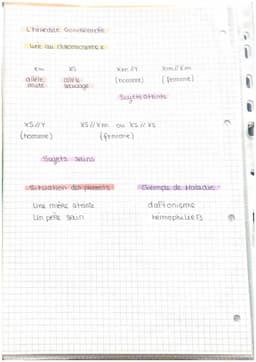 L'hérédité Gonosomale
liée au chromosome X
Xm XS Xm//Y Xm//Xm
allèle allèle (homme) (femme)
muté sauvage
Sujets atteints
XS//Y XS//Xm ou XS//XS
(homme) (femme)
Sujets sains
Situation des parents Exemple de Maladie
Une mère atteinte daltonisme
Un père sain hémophilie B